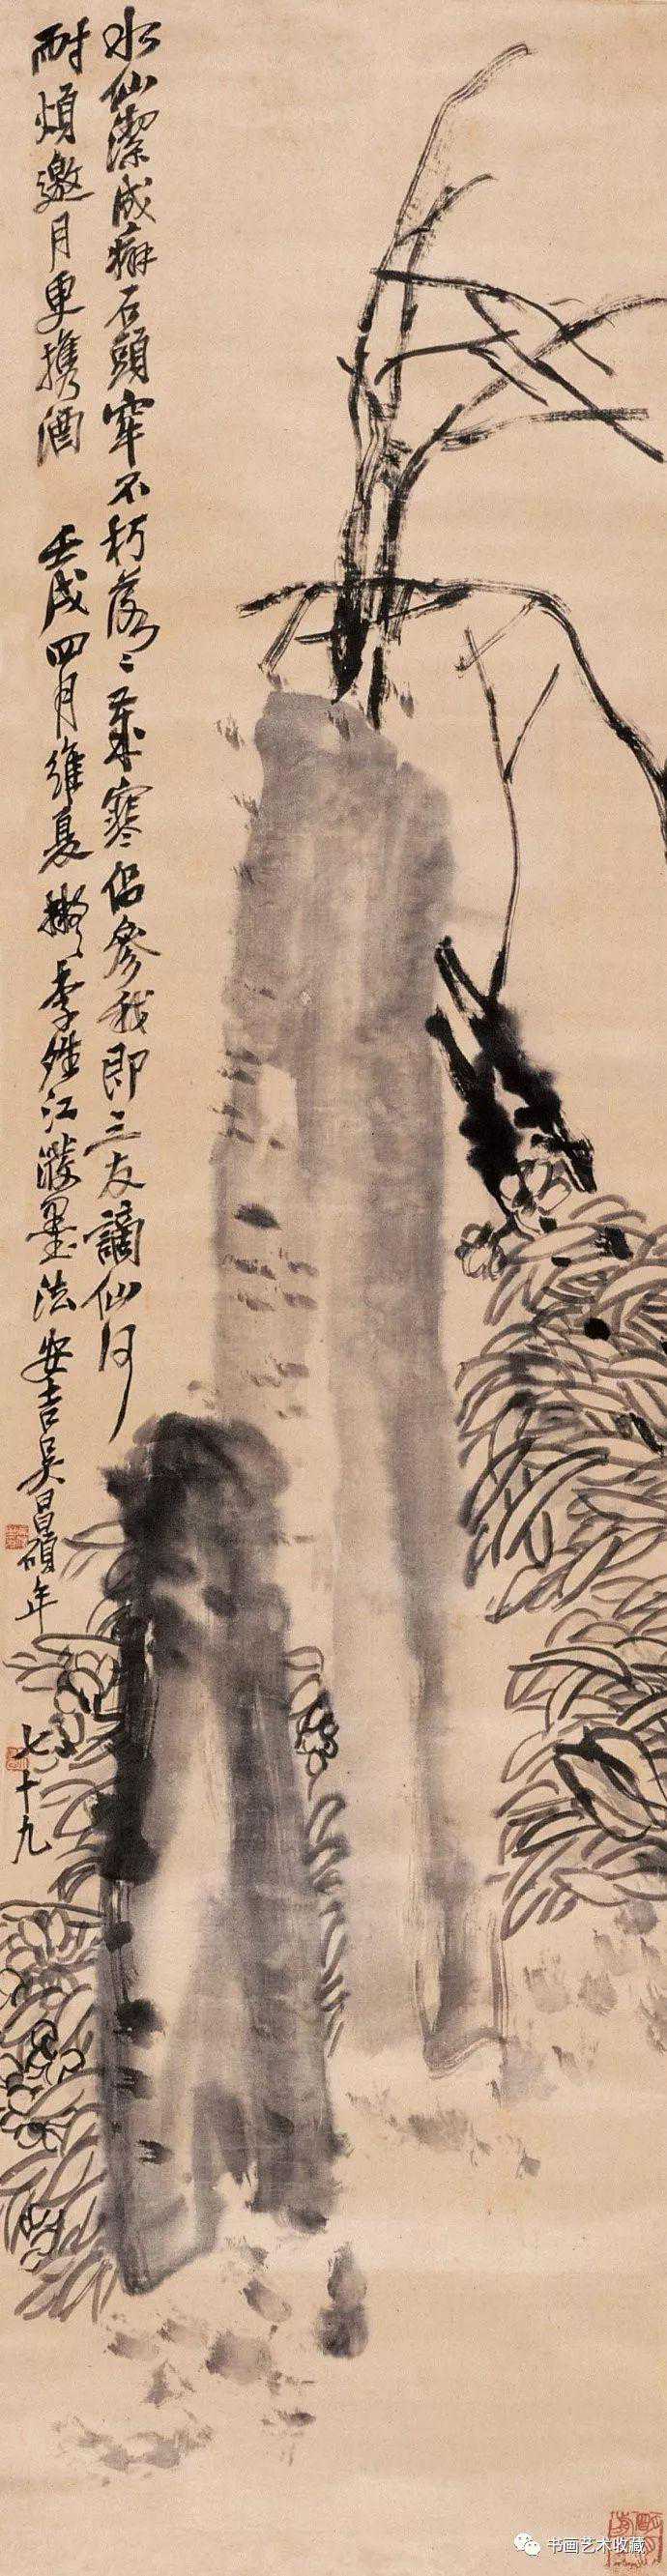 水仙潔成癖石頭窂不朽落〻葉寒侶參我即三友謫仙何
耐煩邀月更攜酒 壬戌四月維夏擬李復江潑墨法安吉吴昌碩年
七十九
书画艺术收藏